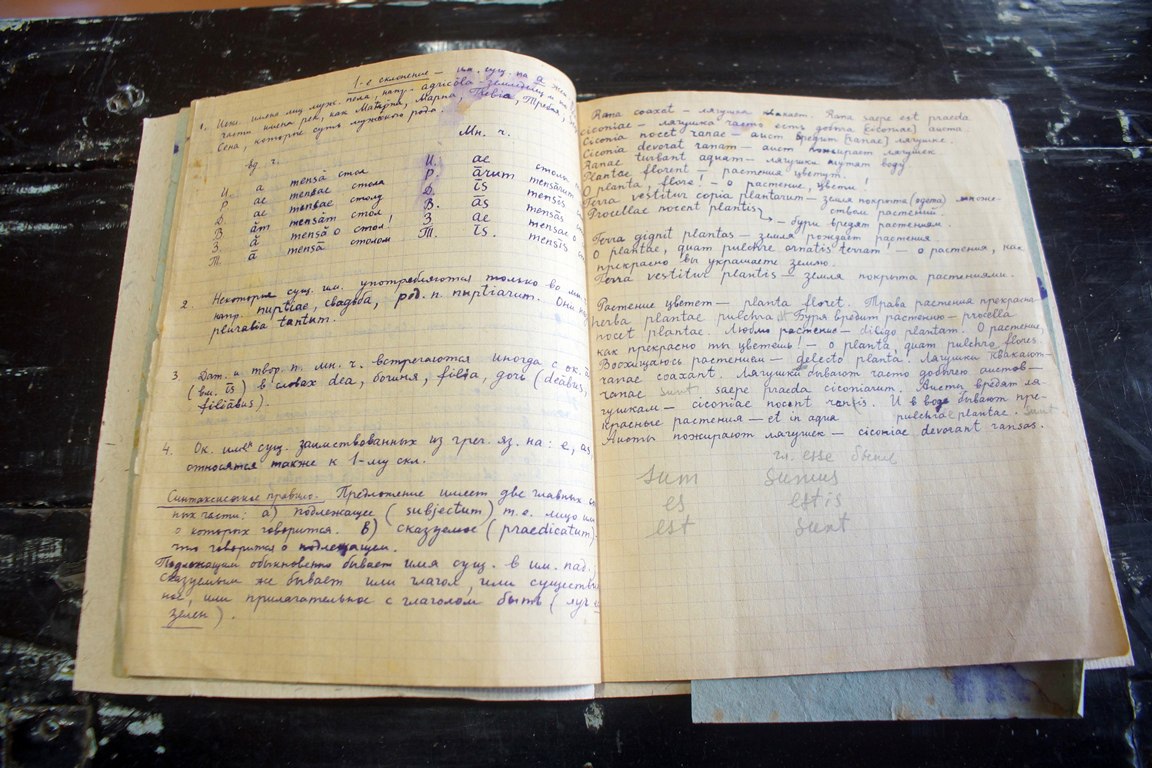 1-е склонение — им. сущ. на а жен.
1. Искл. имена лиц муж. пола, напр. agricola — земледелец и
части имена рек, как Matrŏna, Марна, Trebia, Требия,
Сена, которое суть мужского рода.
ед. ч. Мн. ч.
И. ă mensă стол И. ae столы
Р. ae mensae стола Р. ārum mensārum
Д. ae mensae столу Д. īs mensīs
В ăm mensăm стол В. ās mensās
З. ă mensă о стол! З ae mensae о
Т. ā mensā столом Т. īs. mensīs
2. Некоторые сущ. им. употребляются только во мн.
напр. nuptiae, свадьба, род. п. nuptiarum. Они
pluralia tantum.
3. Дат. и твор. п. мн. ч. встречаются иногда с ок.
(вм. īs) в словах dea, богиня, filia, дочь (deābus,
filiābus).
4. Ок. имен сущ. заимствованных из греч. яз. на: e, as,
относятся также к 1-му скл.
Синтаксическое правило. Предложение имеет две главных
ных части: а) подлежащее (subjectum) т.е. лицо или
о которых говорится. в) сказуемое (praedicatum)-
что говорится о подлежащем.
Подлежащем обыкновенно бывает имя сущ. в им. пад.,
сказуемым же бывает или глагол, или существ
ное, или прилагательное с глаголом быть (луг
зелен).
Rana coaxat — лягушка квакает. Rana saepe est praeda
ciconiae — лягушка часто есть добыча (ciconiae) аиста.
Ciconia nocet ranae — аист вредит (ranae) лягушке.
Ciconia devorat ranam — аист пожирает лягушек
Ranae turbant aquam — лягушки мутят воду
Plantae florent — растения цветут.
O planta, flore! — о растение, цвети!
Terra vestitur copia plantarum — земля покрыта (одета) множе-
ством растений.
Procellae nocent plantis
— бури вредят растениям.
Terra gignit plantas — земля рождает растения.
O plantae, quam pulchre ornatis terram! — о растения, как
прекрасно вы украшаете землю.
Terra vestitur plantis — земля покрыта растениями.
Растение цветет — planta floret. Трава растения прекрасна
herba plantae pulchra Буря вредит растению — procella
nocet plantae. Люблю растение — diligo plantam. О растение,
как прекрасно ты цветешь! — o planta, quam pulchre flores.
Восхищаюсь растением — delecto planta. Лягушки квакают —
ranae coaxant. Лягушки бывают часто добычею аистов —
ranae sunt saepe praeda ciconiarum. Аисты вредят ля-
гушкам — ciconiae nocent ranis. И в воде бывают пре-
красные растения — et in aqua pulchrae plantae. sunt
Аисты пожирают лягушек — ciconiae devorant ranas.
гл. esse быть
sum sumus
es estis
est sunt